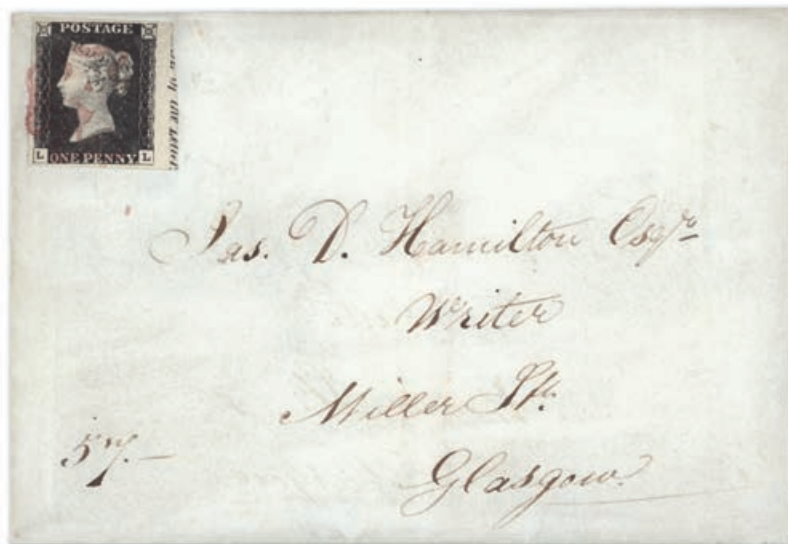 POSTAGE
L ONE PENNY L
of the Letter.
Jas. D. Hamilton Esqre
Writer
Miller St.
57.—
Glasgow.